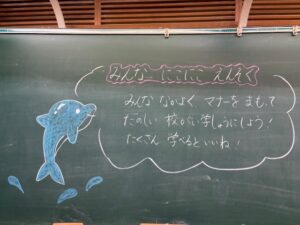 みんな にこにこ えんそく
みんな なかよく マナーを まもって
たのしい 校がい学しゅうにしよう!
たくさん 学べるといいね!